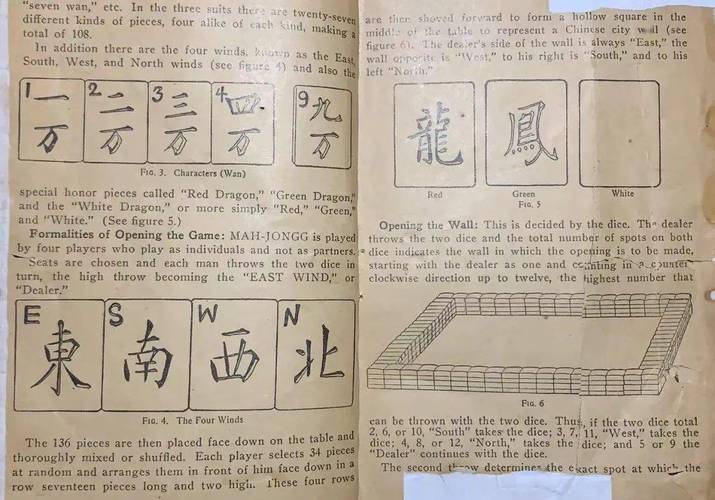 "seven wan," etc. In the three suits there are twenty-seven
different kinds of pieces, four alike of each kind, making a
total of 108.
In addition there are the four winds, known as the East,
South, West, and North winds (see figure 4) and also the
1 2 3 4 9
一 二 三 四 九
万 万 万 万 万
FIG. 3. Characters (Wan)
special honor pieces called "Red Dragon," "Green Dragon,"
and the "White Dragon," or more simply "Red," "Green,"
and "White." (See figure 5.)
Formalities of Opening the Game: MAH-JONGG is played
by four players who play as individuals and not as partners.
Seats are chosen and each man throws the two dice in
turn, the high throw becoming the "EAST WIND," or
"Dealer."
E S W N
東 南 西 北
FIG. 4. The Four Winds
The 136 pieces are then placed face down on the table and
thoroughly mixed or shuffled. Each player selects 34 pieces
at random and arranges them in front of him face down in a
row seventeen pieces long and two high. These four rows
are then shoved forward to form a hollow square in the
middle of the table to represent a Chinese city wall (see
figure 6). The dealer's side of the wall is always "East," the
wall opposite is "West," to his right is "South," and to his
left "North."
龍 鳳
Red Green White
FIG. 5
Opening the Wall: This is decided by the dice. The dealer
throws the two dice and the total number of spots on both
dice indicates the wall in which the opening is to be made,
starting with the dealer as one and counting in a counter
clockwise direction up to twelve, the highest number that
FIG. 6
can be thrown with the two dice. Thus, if the two dice total
2, 6, or 10, "South" takes the dice; 3, 7, 11, "West," takes the
dice; 4, 8, or 12, "North," takes the dice; and 5 or 9 the
"Dealer" continues with the dice.
The second throw determines the exact spot at which the